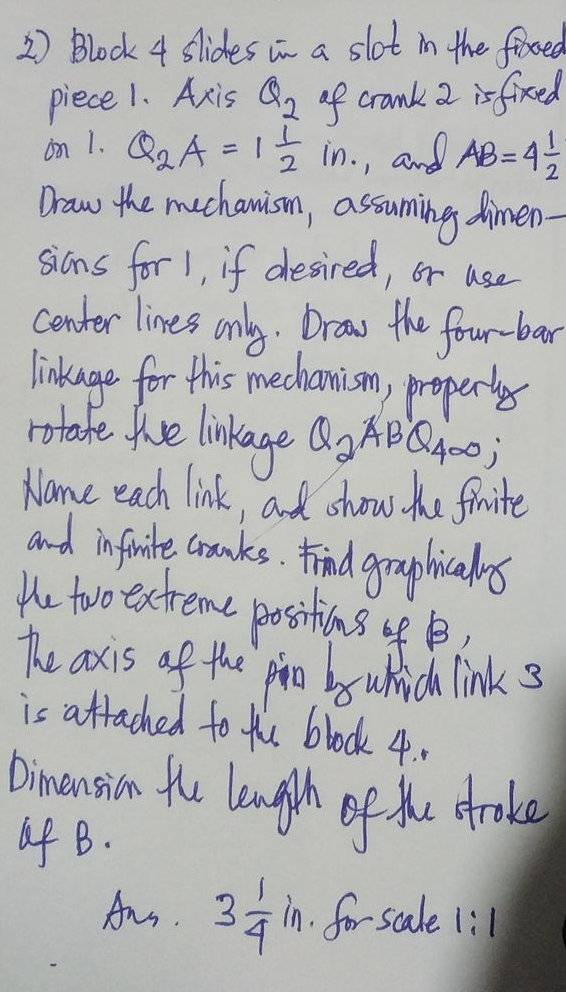 2) Block 4 slides in a slot in the fixed
piece 1. Axis Q₂ of crank 2 is fixed
on 1. Q₂A = 1 1/2 in., and AB = 4 1/2
Draw the mechanism, assuming dimen-
sions for 1, if desired, or use
center lines only. Draw the four-bar
linkage for this mechanism, properly
rotate the linkage Q₂ABQ₄∞;
Name each link, and show the finite
and infinite cranks. Find graphically
the two extreme positions of B,
the axis of the pin by which link 3
is attached to the block 4.
Dimension the length of the stroke
of B.
Ans. 3 1/4 in. for scale 1:1